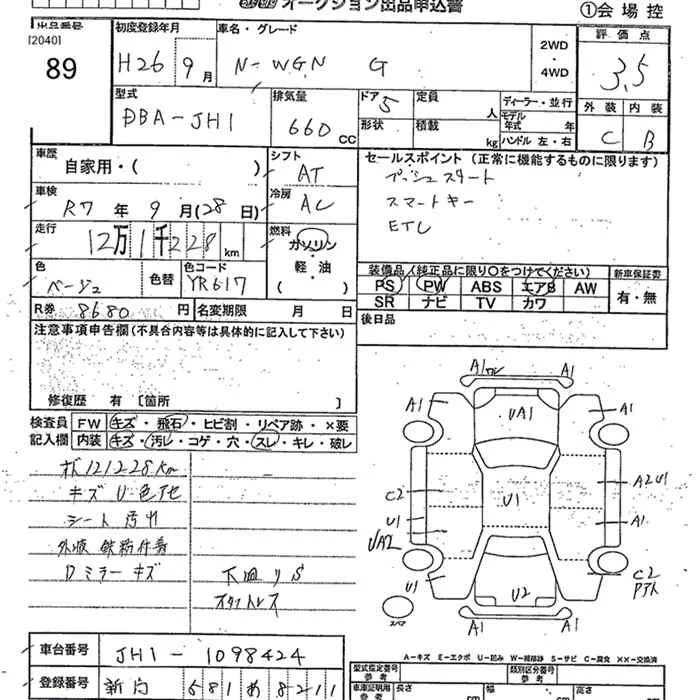 オークション出品申込書
①会場控
出品番号
[2040]
89
初度登録年月
H26 9月
車名・グレード
N-WGN G
2WD
・
4WD
評価点
3.5
型式
DBA-JH1
排気量
660 CC
ドア 5
形状
定員 人
積載 kg
ディーラー・並行
モデル年式 年
ハンドル 左・右
外装 内装
C B
車歴
自家用・( )
シフト
AT
セールスポイント (正常に機能するものに限ります)
プッシュスタート
スマートキー
ETC
車検
R7年 9月(28日)
冷房
AC
走行
12万1千228km
燃料
ガソリン
・
軽・油
( )
色
ベージュ
色替
色コード
YR617
装備品(純正品に限り○をつけてください)
PS PW ABS エアB AW
SR ナビ TV カワ
新車保証書
有・無
R券 8680円
名変期限 月 日
後日品
注意事項申告欄(不具合内容等は具体的に記入して下さい)
修復歴 有 [箇所 ]
検査員記入欄
FW キズ・飛石・ヒビ割・リペア跡・×要
内装 キズ・汚レ・コゲ・穴・スレ・キレ・破レ
121228km
キズ U 色アセ
シート汚れ
外板 鉄粉付着
Dミラーキズ
下廻りS
A1 A1
A1 UA1 A1
C2 U1 A2U1
U1 A1
UA2
U1 U2 C2
A1 A1
スペア
A-キズ E-エクボ U-凹み W-補修跡 S-サビ C-腐食 XX-交換済
車台番号
JH1-1098424
登録番号
581 あ 8211
型式指定番号
参考
類別区分番号
参考
車庫証明用
参考
長さ 幅 高さ
cm